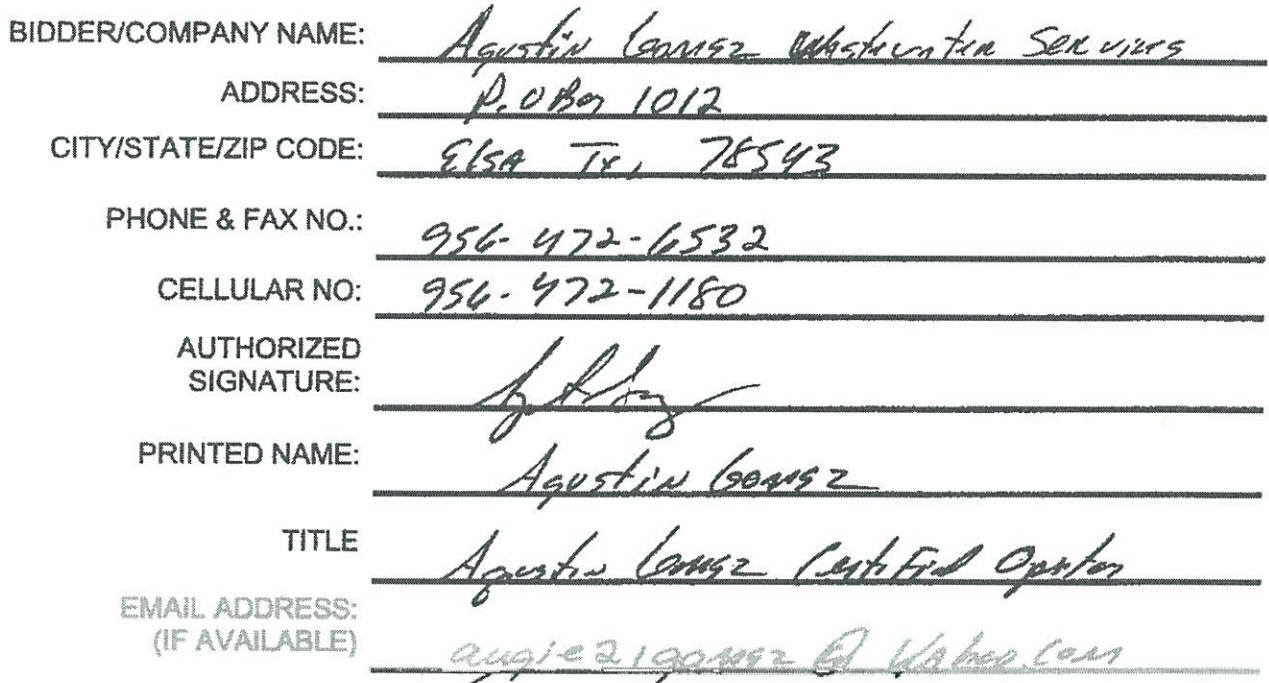 BIDDER/COMPANY NAME: Agustin Gomez Wastewater Services
ADDRESS: P.O Box 1012
CITY/STATE/ZIP CODE: Elsa Tx, 78543
PHONE & FAX NO.: 956-472-6532
CELLULAR NO: 956-472-1180
AUTHORIZED
SIGNATURE:
PRINTED NAME: Agustin Gomez
TITLE Agustin Gomez Certified Operator
EMAIL ADDRESS:
(IF AVAILABLE) augie21gomez@Yahoo.com